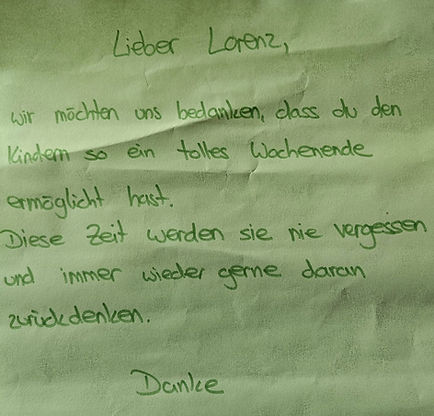 Lieber Lorenz,
wir möchten uns bedanken, dass du den
Kindern so ein tolles Wochenende
ermöglicht hast.
Diese Zeit werden sie nie vergessen
und immer wieder gerne daran
zurückdenken.
Danke